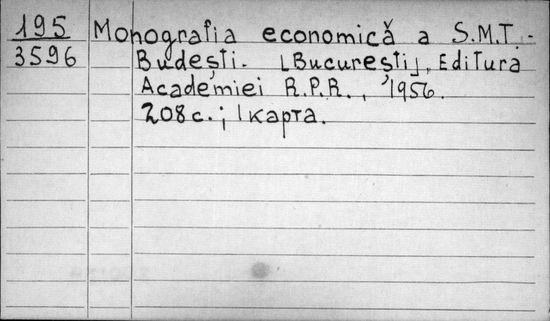 195 Monografia economică a S.M.T.-
3596 Budești. [București], Editura
Academiei R.P.R., 1956.
208 с.; 1 карта.